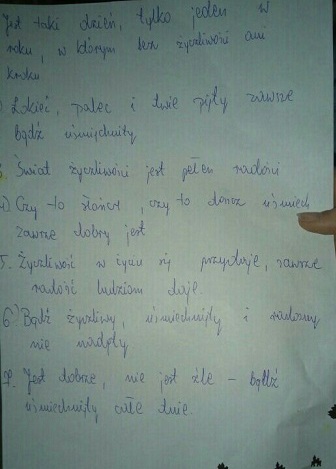 Jest taki dzień, tylko jeden w
roku, w którym bez życzliwości ani
kroku
Łokieć, palec i dwie pięty zawsze
bądź uśmiechnięty
Świat życzliwości jest pełen radości
4) Czy to słońce, czy to deszcz uśmiech
zawsze dobry jest
5. Życzliwość w życiu się przydaje, zawsze
radość ludziom daje.
6) Bądź życzliwy, uśmiechnięty i radosny
nie nadęty
7. Jest dobrze, nie jest źle – bądź
uśmiechnięty całe dnie.